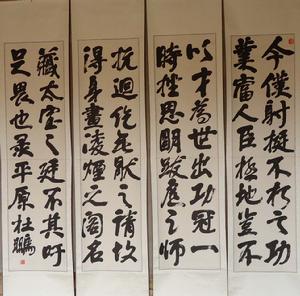 今僕射挺不朽之功
業當人臣極地豈不
以才為世出功冠一
時挫思明跋扈之師
抗迴紇無厭之請故
得身畫凌煙之閣名
藏太室之廷不其吁
足畏也录平原杜鵬